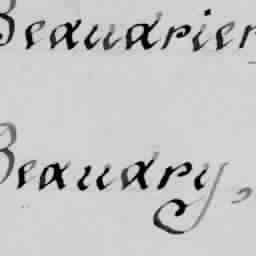 Beaudrier
Beaudry,